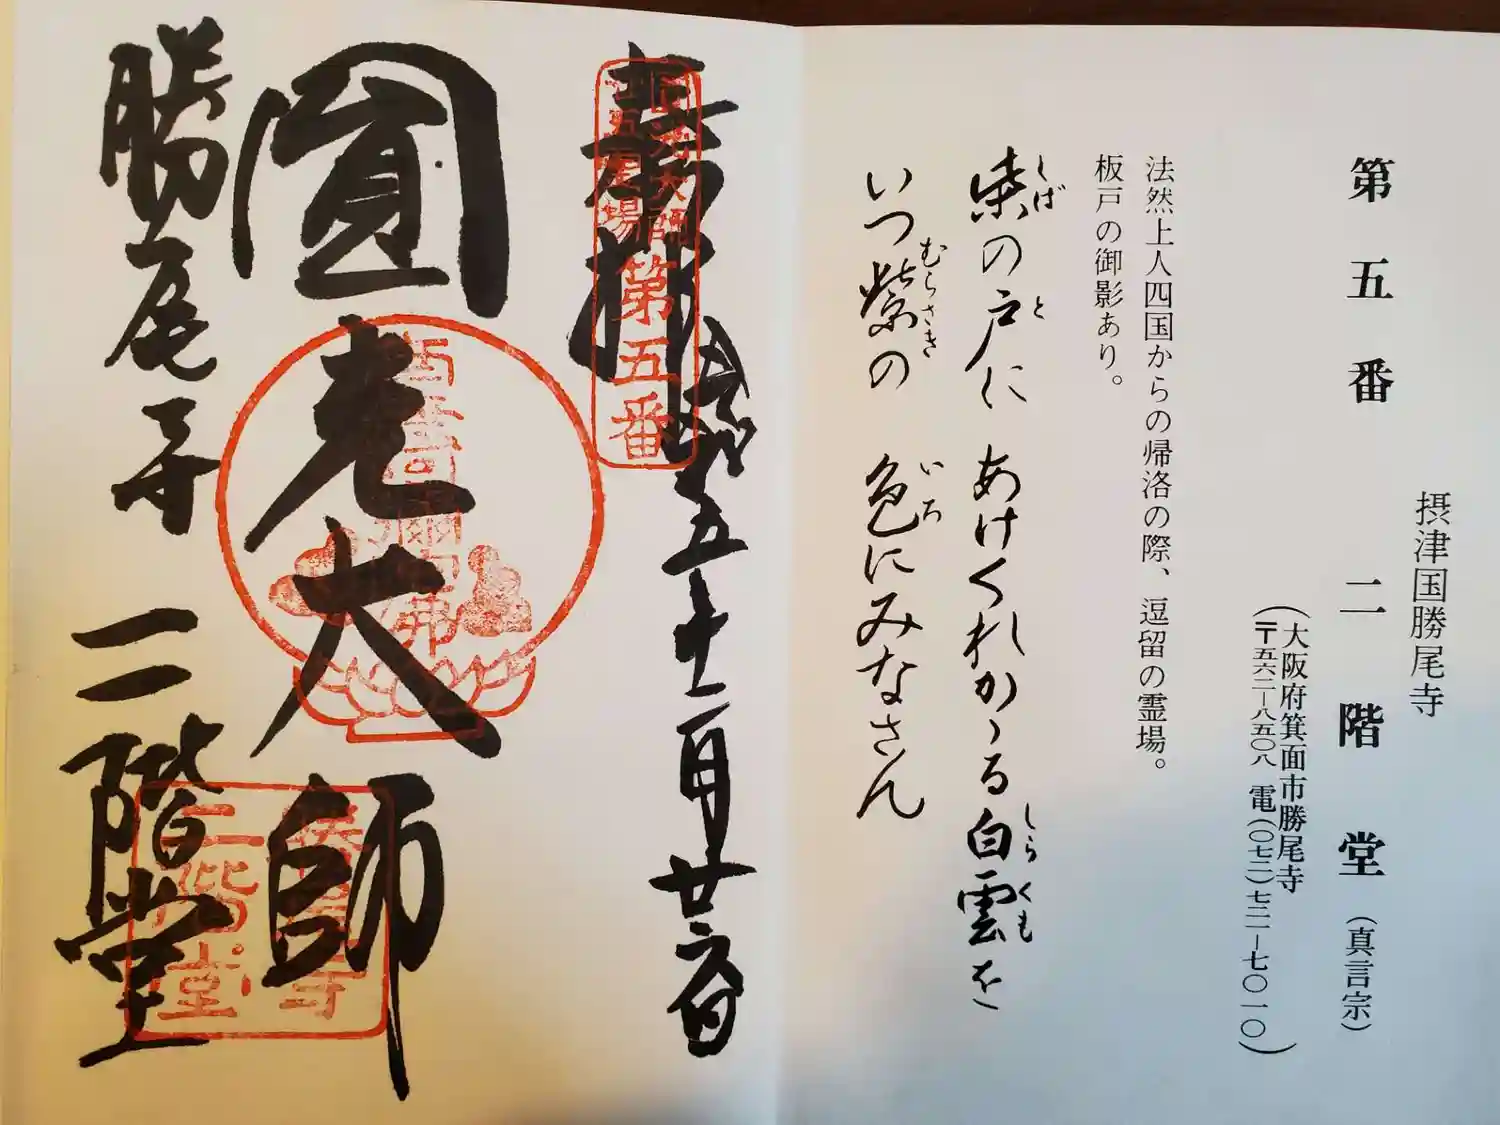 摂津国勝尾寺
第五番 二階堂(真言宗)
(大阪府箕面市勝尾寺
〒五六二―八五〇八 電(〇七二)七二一―七〇一〇)
法然上人四国からの帰洛の際、逗留の霊場。
板戸の御影あり。
しば と しらくも
柴の戸に あけくれかゝる白雲を
むらさき いろ
いつ紫の 色にみなさん
奉拝
第五番
十一月廿六日
圓光大師
勝尾寺 二階堂
勝尾寺
二階堂